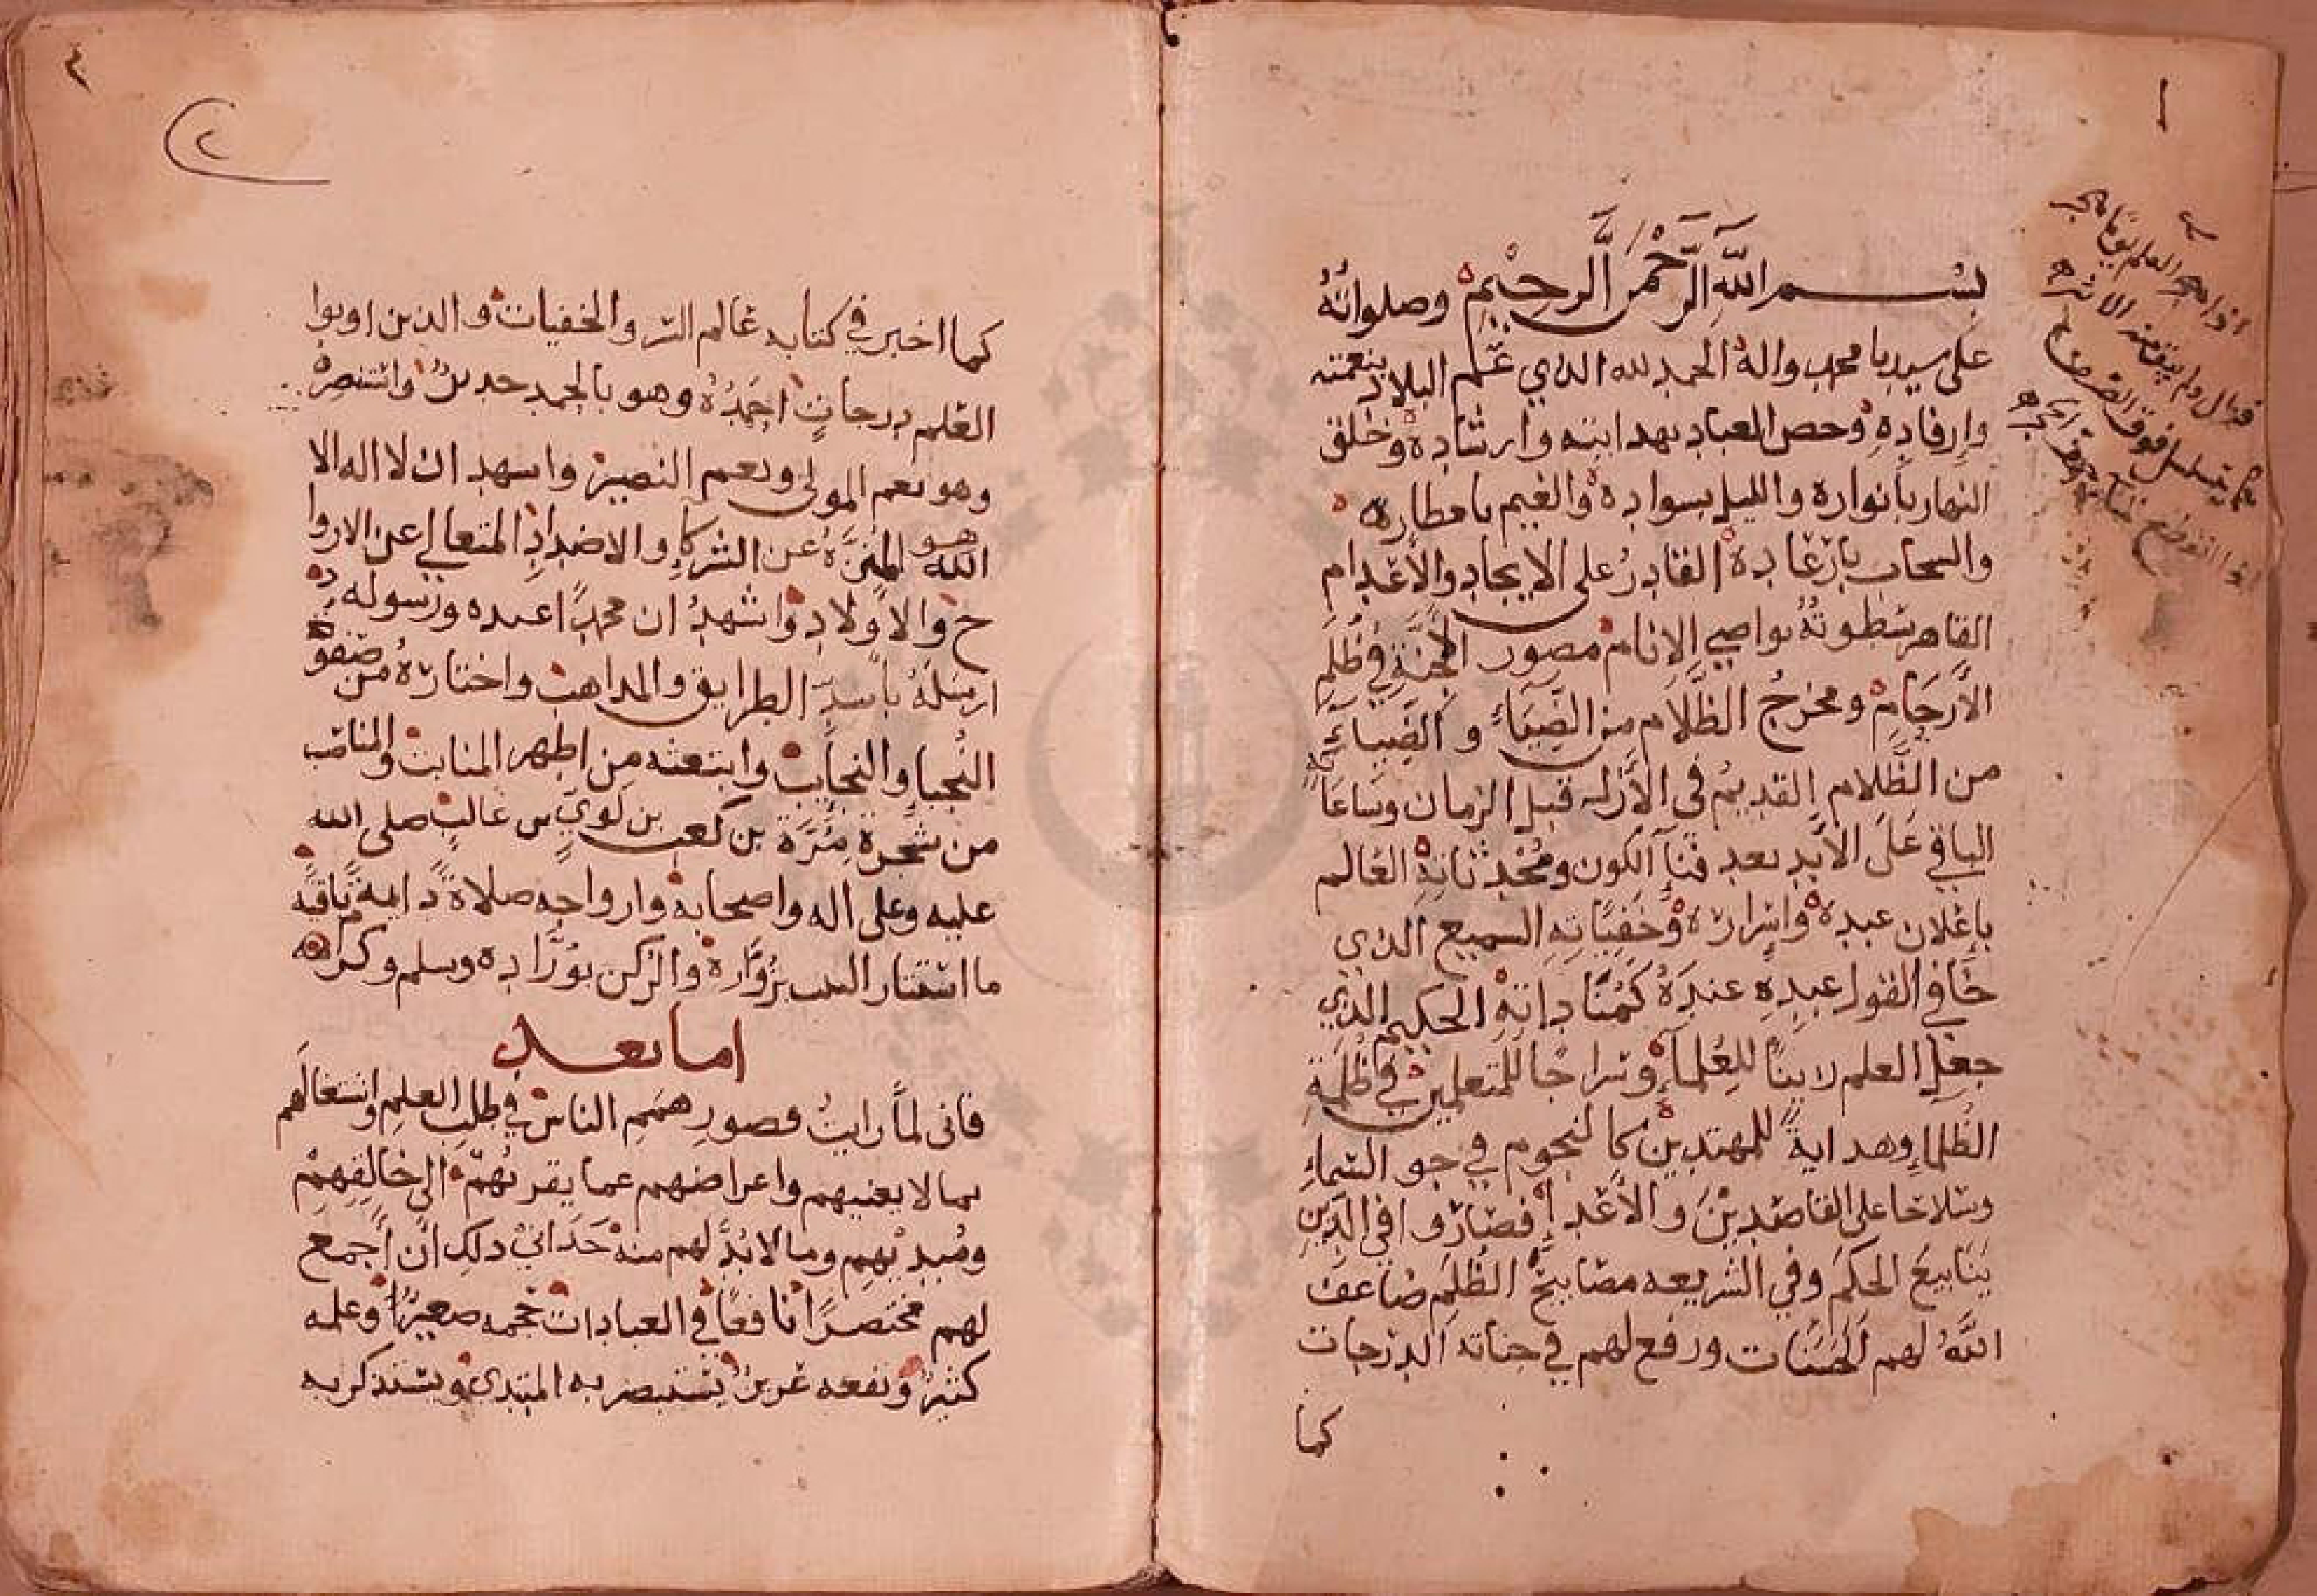 ١
بسم الله الرحمن الرحيم وصلواته
على سيدنا محمد واله الحمد لله الذي عمم البلاد بنعمته
وارفاده وخص العباد بهدايته وارشاده وخلق
النهار بأنواره والليل بسواده والغيم بامطاره
والسحاب بارعاده القادر على الايجاد والأعدام
القاهر سطوته نواصي الانام مصور الاجنة في ظلم
الأرحام ومخرج الظلام من الضياء و الضياء
من الظلام القديم في الأزل قبل الزمان وساعا
الباقي على الأبد بعد فنآ الكون ومحدثاته العالم
باعلان عبده واسراره وخفياته السميع الذي
خافي القول عبده عنده كمناداته الحكيم الذي
جعل العلم زينا للعلماء وسراجا للمتعلمين في ظلمة
الظلماء وهداية للمهتدين كالنجوم في جو السماء
وسلاحا على القاصدين والأعداء فصاروا في الدين
ينابيع الحكم وفي الشريعه مصابيح الظلم ضاعف
الله لهم الحسنات ورفع لهم في جناته الدرجات
كما
٤
٢
كما اخبر في كتابه عالم السر والخفيات والذين اوتوا
العلم درجات احمده وهو بالحمد جدير واستنصره
وهو نعم المولى ونعم النصير واشهد ان لا اله الا
الله هو المنزه عن الشركاء والاضداد المتعالي عن الازوا
ج والاولاد واشهد ان محمدا عبده ورسوله
ارسله باسد الطرايق والمداهب واختاره من صفوة
النجباء والنجايب وابتعثه من اطهر المنابت والمناصب
من شجرة مرة بن كعب بن لوي بن غالب صلى الله
عليه وعلى اله واصحابه وازواجه صلاة دايمة باقية
ما استنار البيت بزواره والركن بوراده وسلم وكرم
اما بعد
فانى لما رايت قصور همم الناس في طلب العلم واشتغالهم
بما لا يعنيهم واعراضهم عما يقربهم الى خالقهم
ومبديهم وما لا بد لهم منه حداني دلك ان أجمع
لهم مختصرا نافعا في العبادات حجمه صغير وعلمه
كثير ونفعه غزير يستبصر به المبتدي ويستذكر به